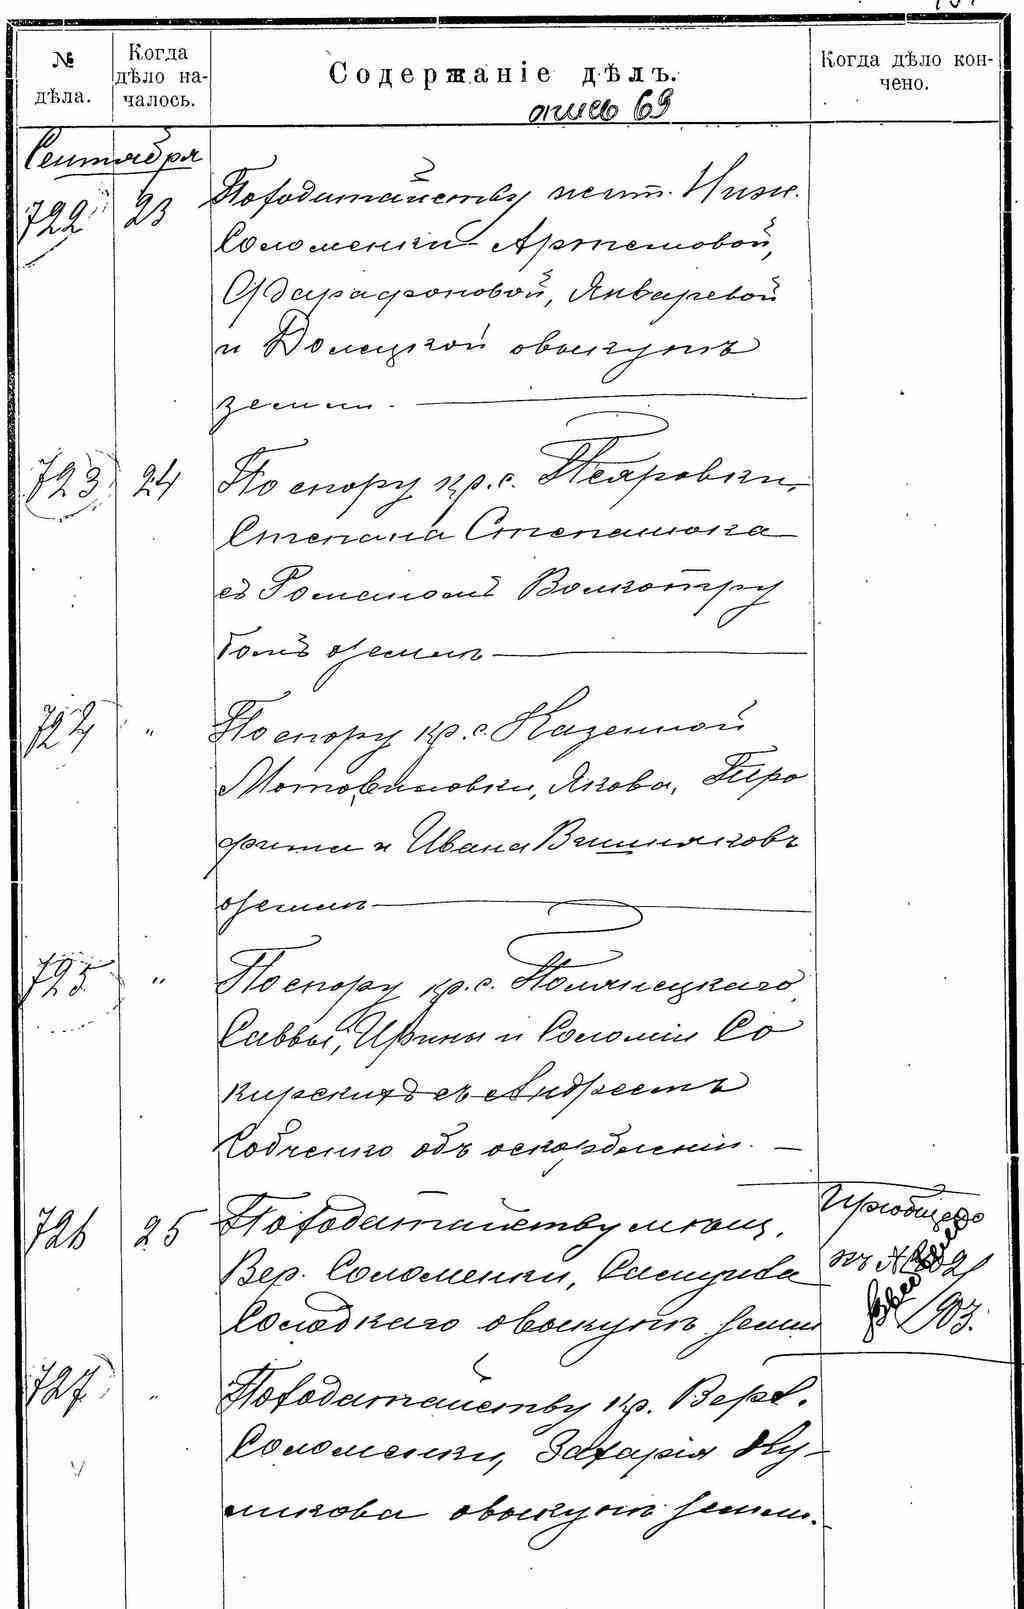 № дѣла.
Когда дѣло началось.
Содержанiе дѣлъ.
Когда дѣло кончено.
опись 69
Сентября
722 23 По ходатайству мѣщ. Ниж.
Соломенки Артемовой,
Фарафоновой, Январевой
и Долецкой о выкупѣ
земли.
723 24 По спору кр. с.
Степана Степанюка
съ Романомъ Волкотру
бомъ о землѣ
724 " По спору кр. с. Казенной
Мотовиловки, Якова, Тро
фима и Ивана Вишняковъ
о землѣ
725 " По спору кр. с. Полянецкаго
Саввы, Ирины и Соломіи Со
кирскихъ съ Андреемъ
Собченко объ оскорбленіи.
726 25 По ходатайству мѣщ.
Вер. Соломенки, Самуила
Солодкаго о выкупѣ земли
Приобщено
къ №
903.
727 " По ходатайству кр. Верх.
Соломенки, Захарія Ку-
ликова о выкупѣ земли.